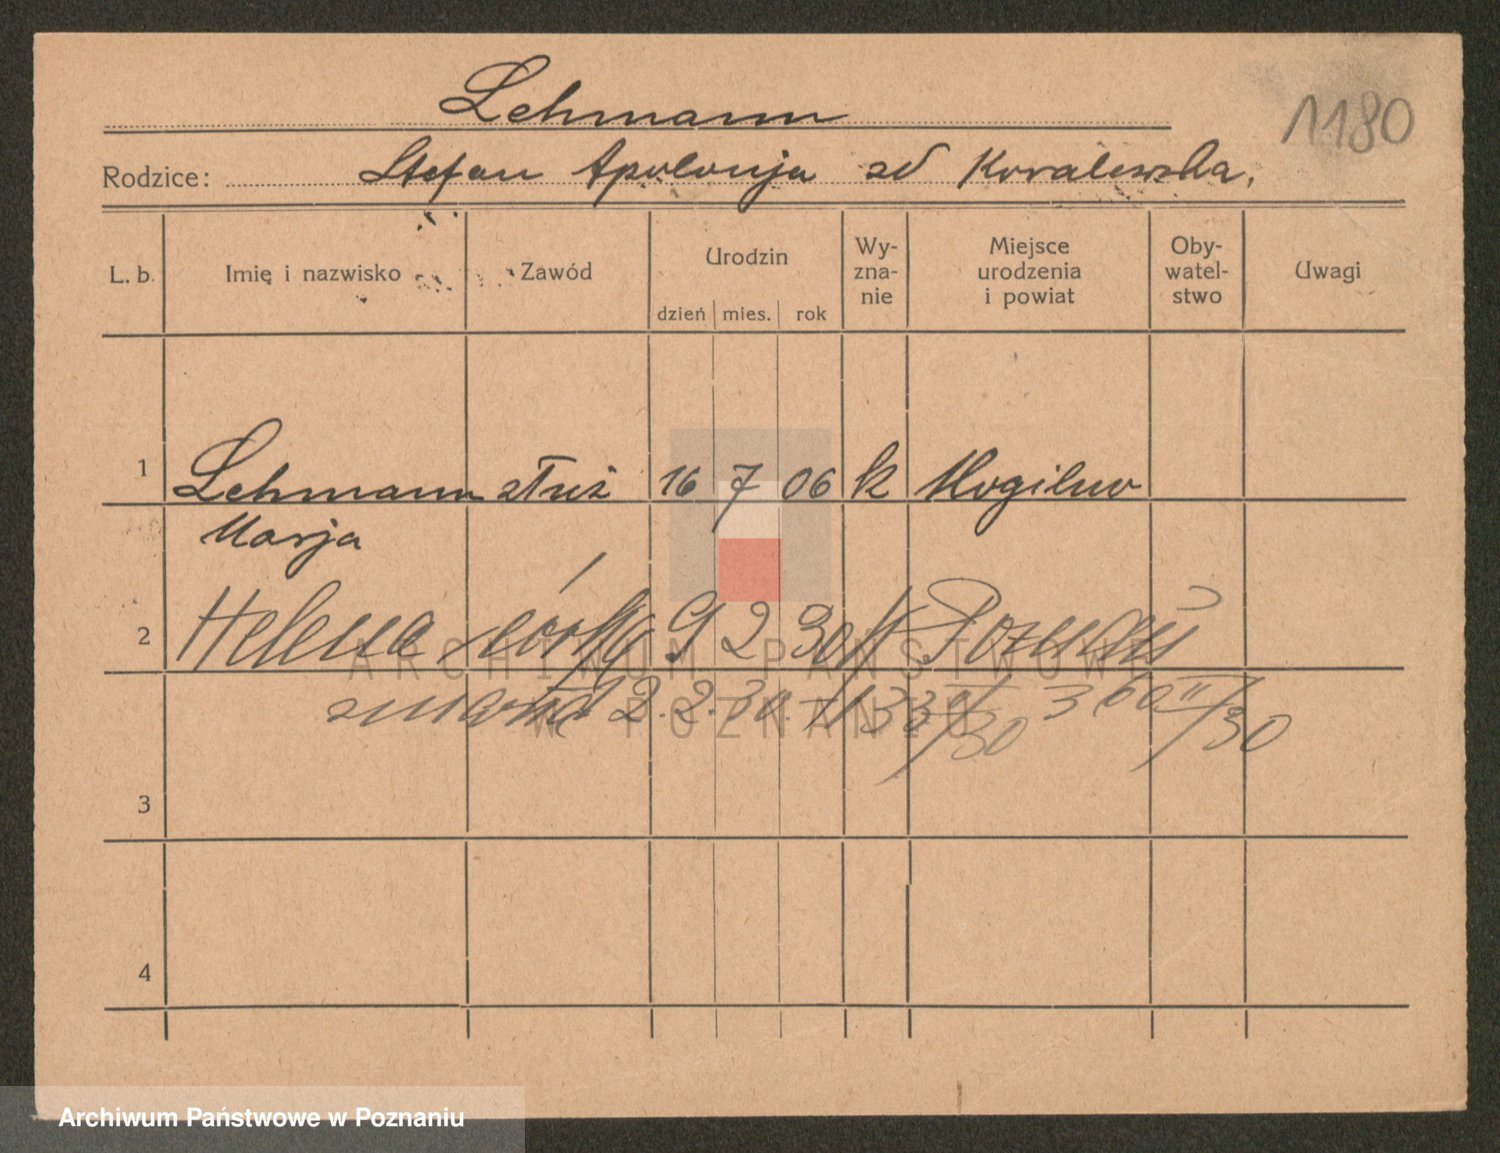 Lehmann
1180
Rodzice: Stefan Apolonja zd Kovalewska.
L. b. Imię i nazwisko Zawód Urodzin dzień mies. rok Wy-zna-nie Miejsce urodzenia i powiat Oby-watel-stwo Uwagi
1 Lehmann służ 16 7 06 k Mogilno
Marja
2 Helena córka 9 2 30 k Poznań
zmarła 2. 2. 30.
3
4
ARCHIWUM PAŃSTWOWE
W POZNANIU
Archiwum Państwowe w Poznaniu